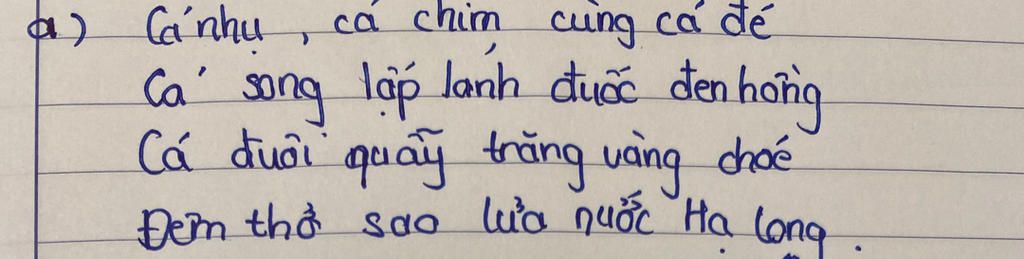 a) Cá nhụ, cá chim cùng cá đé
Cá song lấp lánh đuốc đen hồng
Cá đuôi quẫy trăng vàng choé
Đêm thở sao lùa nước Hạ Long.